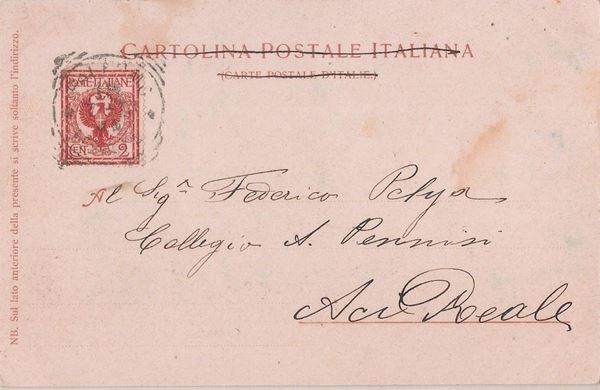 CARTOLINA POSTALE ITALIANA
(CARTE POSTALE D'ITALIE)
POSTE ITALIANE
CEN 2
Al Sigr Federico
Collegio A. Pennisi
Aci Reale
NB. Sul lato anteriore della presente si scrive soltanto l'indirizzo.